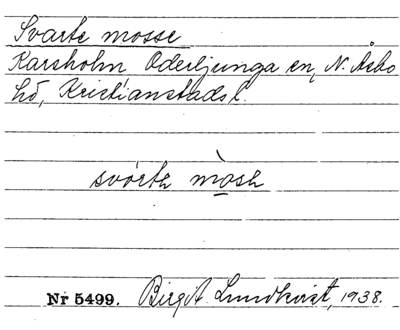 Svarte mosse
Karsholm Oderljunga sn, N. Åsbo
hd, Kristianstads l.
svórte mòse
Nr 5499. Birgit Lundkvist, 1938.